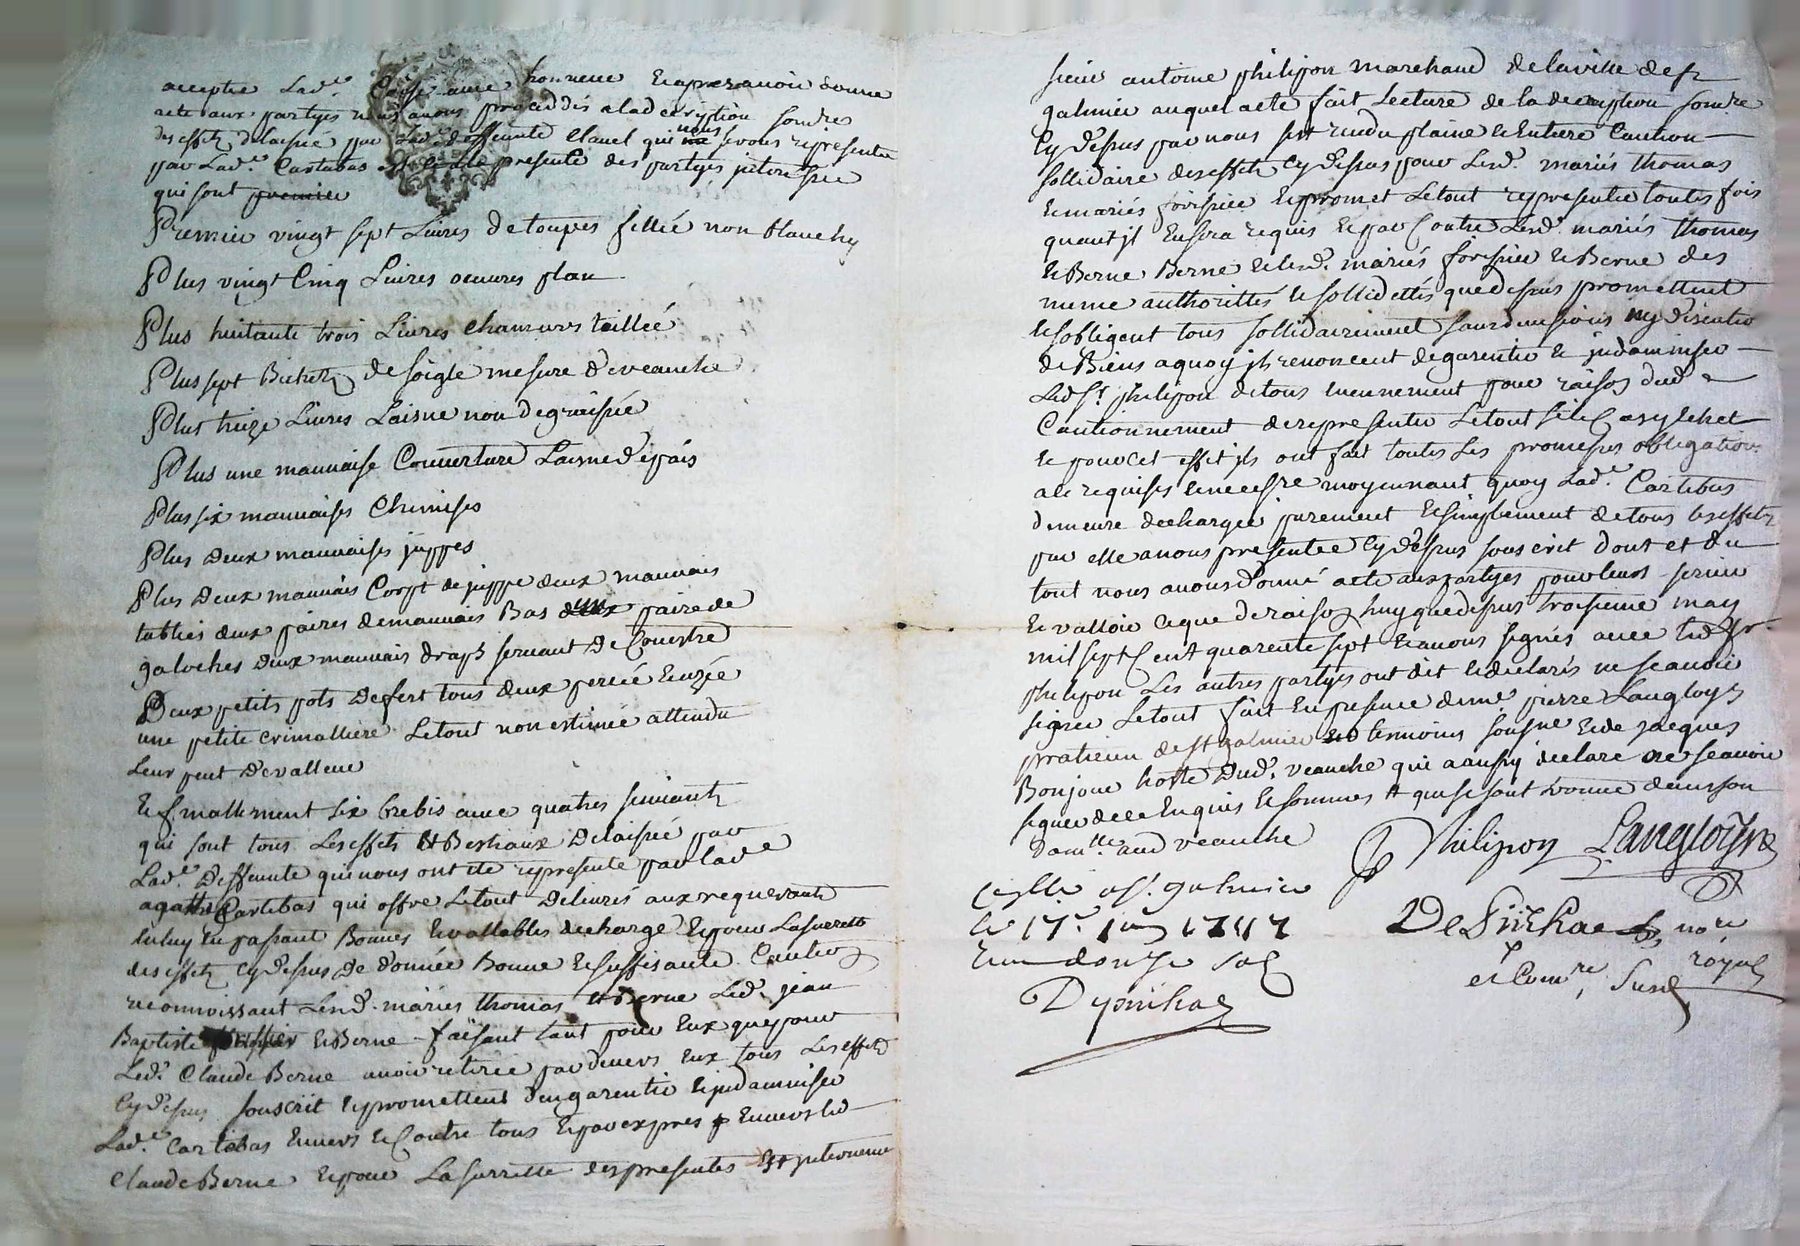 accepté Lad.e honneur Et apres avoir donné
acte aux partyes nous avons proceddés a lad. description sondre
des effets delaissée par Lad. deffuncte Clauel qui nous se vous representee
par Lad.e Cartebas presente des partyes
qui sont premier
Premier vingt sept Liures de toupes fillée non blanchy
Plus vingt Cinq Liures oeuures plan
Plus huitante trois Liures chanures teillée
Plus sept Bichetz de soigle mesure de veauche
Plus treize Liures Laisne non degraissée
Plus une mauuaise Couuerture Laisne d'epais
Plus six mauuaises Chemises
Plus deux mauuaises juppes
Plus deux mauuais Corpt de juppe deux mauuais
tabliés deux paires de mauuais Bas deux paire de
galoches deux mauuais draps seruant de Couestre
Deux petits pots de fert tous deux percée Et uzée
une petite crimalliere Le tout non estimée attendu
Leur peut de valleur
Et finallement six brebis auec quatres suiuants
qui sont tous Les effets Et Bestiaux delaissée par
Lad.e deffuncte qui nous ont ete representé par lad.e
agatte Cartebas qui offre Le tout deliurés aux requerants
luluy En passant Bonnes Et vallables decharge Et pour La
des effetz cy dessus de donnée Bonne Et suffisante Caution
reconnoissant Lesd. mariés thomas Et Berne Led. jean
Baptiste Et Berne faisant tant pour Eux que pour
Led. Claude Berne auoir retirée par deuers Eux tous Les effets
Cy dessus souscrit Et promettent d'en garentir Et indamniser
Lad.e Cartebas Enuers Et Contre tous Et par expres Enuers led
Claude Berne Et pour La surrette des presentes Est interuenu
sieur antoine philipon marchand de la ville de st
galmier auquel acte fait Lecture de la description sondre
Cy dessus par nous s'est rendu plaine Et Entiere Caution
sollidaire des effetz cy dessus pour Lesd. mariés thomas
Et mariés forissier Et promet Le tout representer toutes fois
quant jl En sera requis Et par Contre Lesd. mariés thomas
Et Berne Berne Et lesd. mariés forissier Et Berne des
meme authorittés Et sollidettés que dessus promettent
Et sobligent tous sollidairement sans diuision ny discution
de Biens a quoy jls renoncent de garentir Et indamniser
Led. Sr. philipon de tous Euennement pour raison dud
Cautionnement de representer Le tout si le Cas y Echet
Et pour cet effit jls ont fait toutes Les promesses obligations
a ce requises Et necessre moyennant quoy Lad.e Cartebas
demeure dechargée purement Et simplement de tous les effetz
par elle a nous presentée cy dessus souscrit dont et du
tout nous auons Donné acte aux partyes pour leur seruir
Et valloir ce que de raison huy que dessus troisieme may
mil sept Cent quarente sept Et auons signés auec led Sr.
philipon Les autres partyes ont dit Et declarés ne scauoir
signer Le tout fait En presence de me. pierre Langloys
praticien de st galmier temoins sousne Et de jacques
Bonjour hoste dud. veauche qui a aussy declaré ne scauoir
signer de ce Enquis Et sommes qui se sont donné dans son
domlle. aud veauche
Philipon Langloys
a st. galmier
le 17e 1747
douze sols
Desvichae nore
royal
et Comre. susd